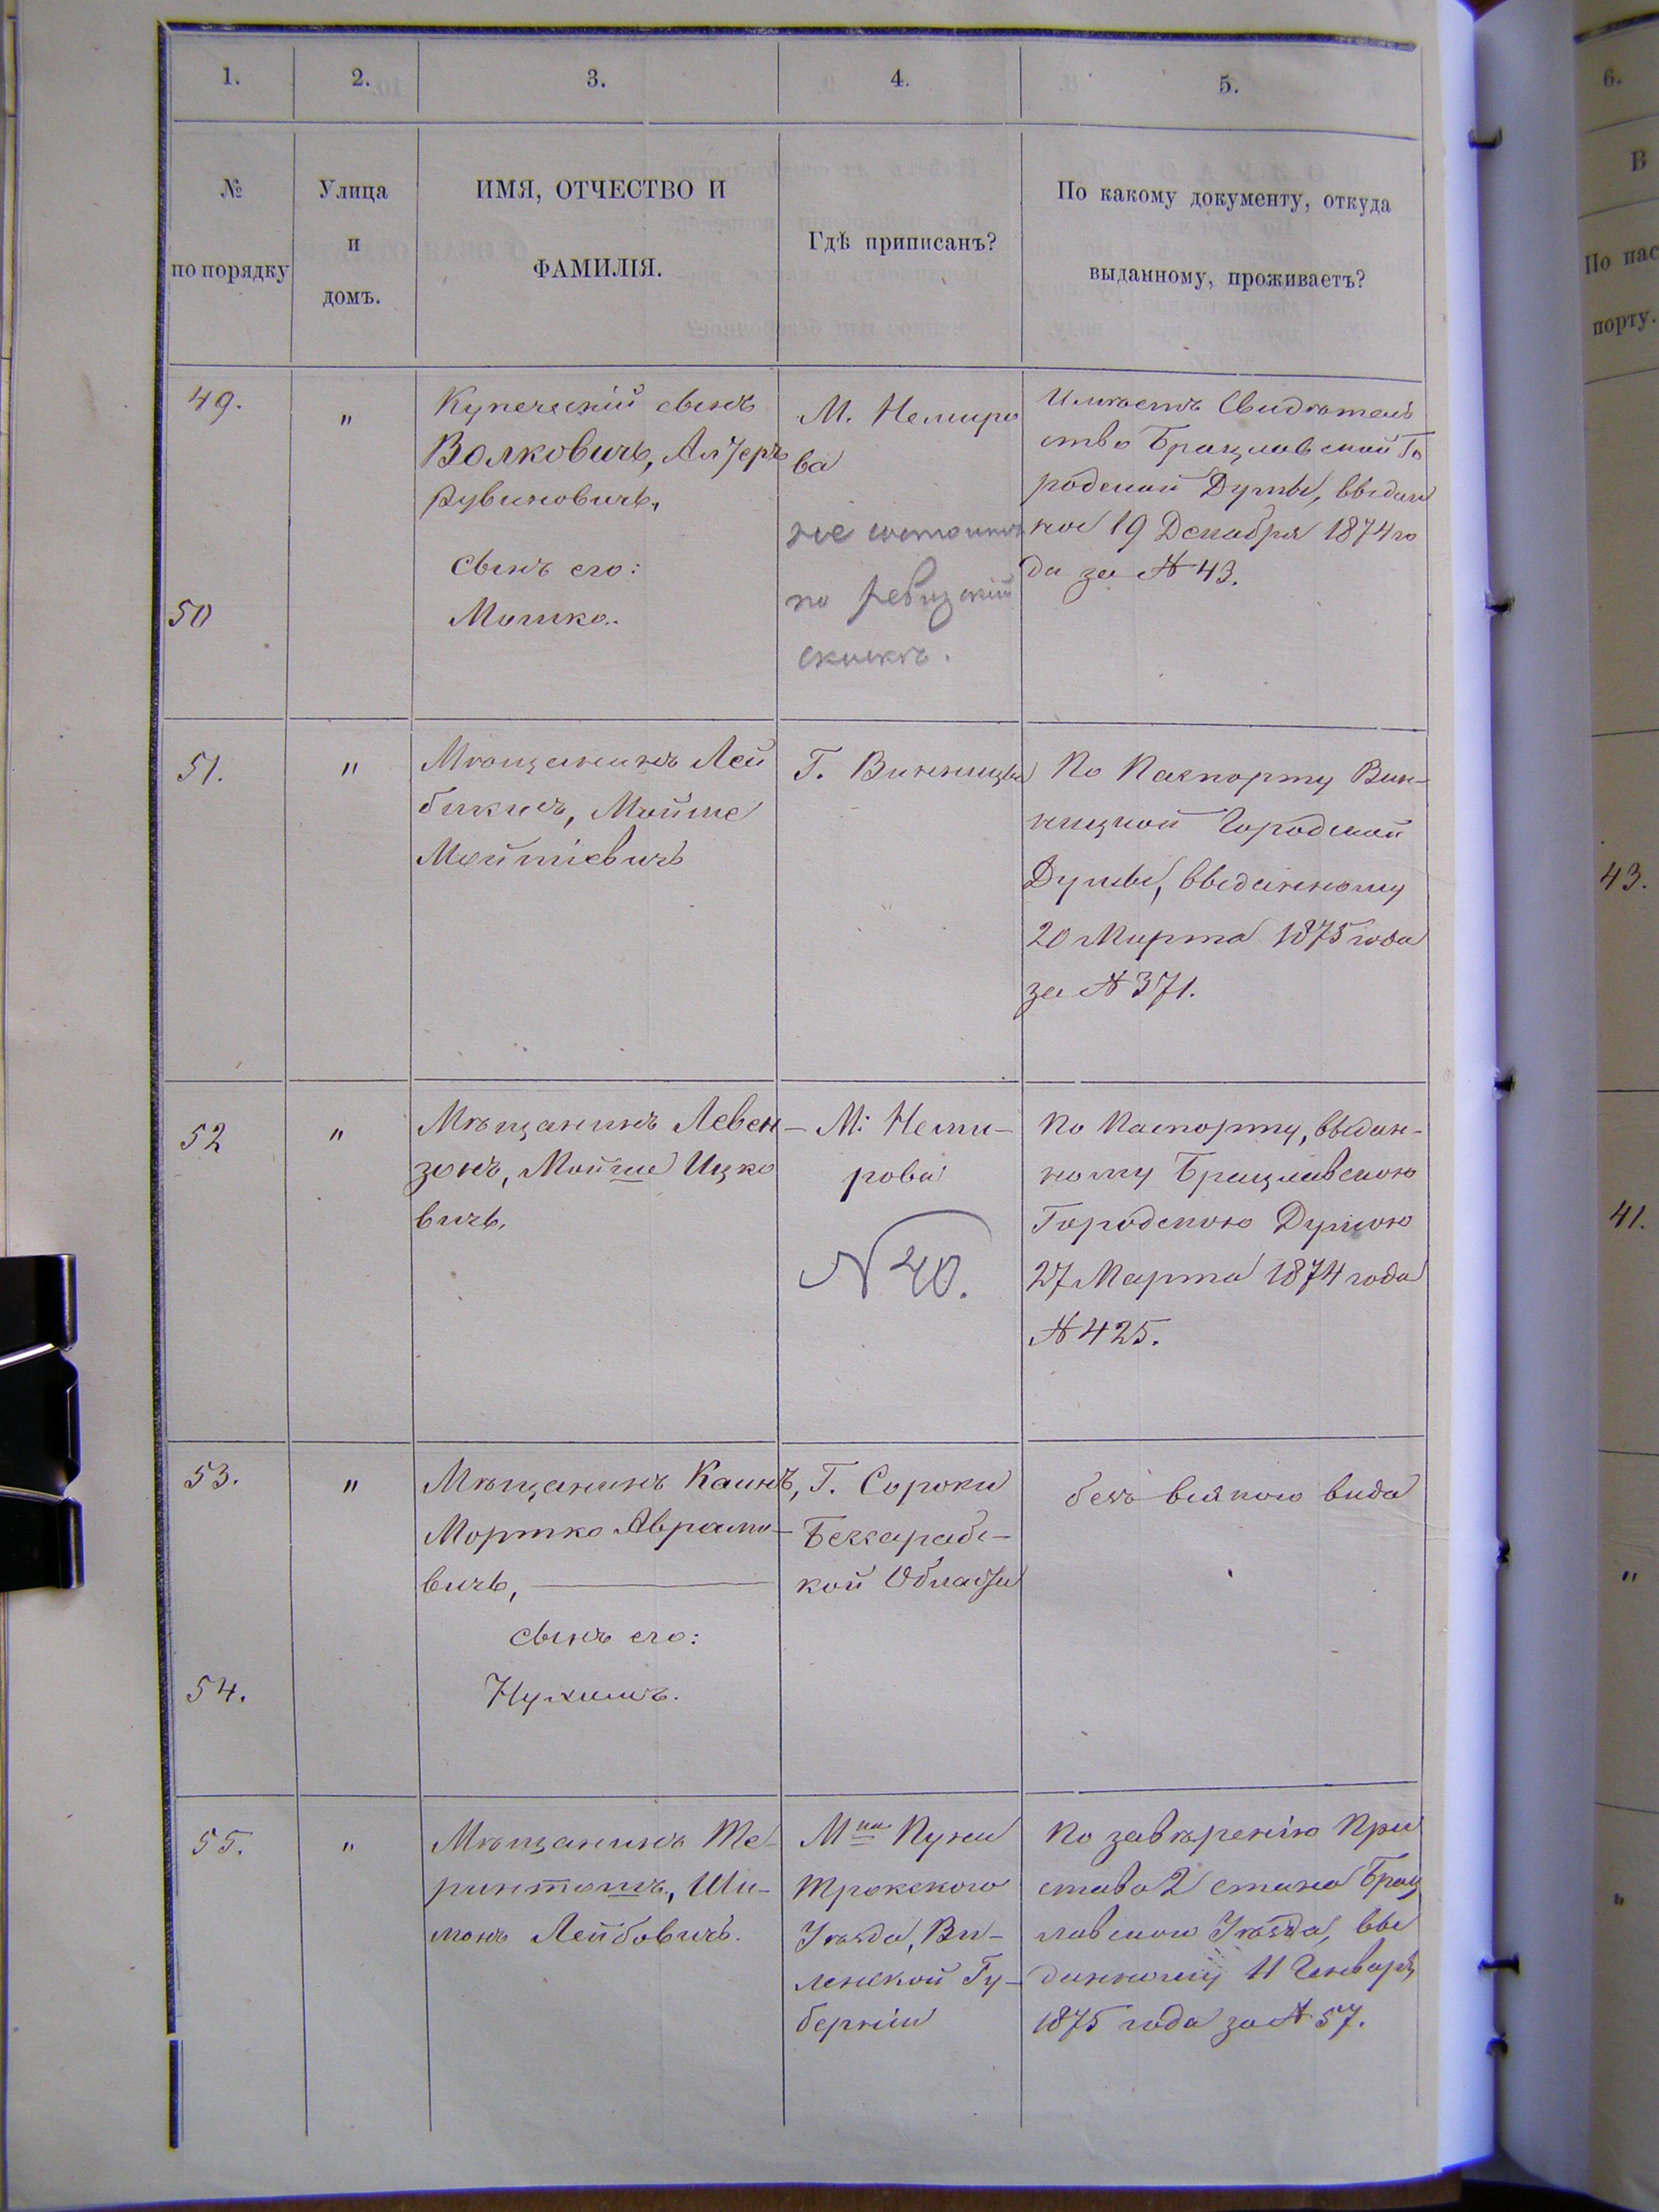 1. 2. 3. 4. 5.
№
по порядку
Улица
и
домъ.
ИМЯ, ОТЧЕСТВО И
ФАМИЛІЯ.
Гдѣ приписанъ?
По какому документу, откуда
выданному, проживаетъ?
49.
"
Купеческій сынъ
Волковичъ, Алтеръ
Рувиновичъ,
сынъ его:
50
Мошко.
М. Немиро
ва
не состоитъ
по ревизской
скаскѣ.
Имѣетъ Свидѣтель
ство Брацлавской Го
родской Думы, выдан
ное 19 Декабря 1874 го
да за № 43.
51.
"
Мѣщанинъ Лей
бикисъ, Мойше
Мойшіевичъ
Г. Винницы
По Паспорту Вин-
ницкой Городской
Думы, выданному
20 Марта 1875 года
за № 371.
52
"
Мѣщанинъ Левен-
зонъ, Мойше Ицко
вичъ.
М: Неми-
рова
N 40.
По Паспорту, выдан-
ному Брацлавскою
Городскою Думою
27 Марта 1874 года
№ 425.
53.
"
Мѣщанинъ Каинъ,
Мортко Аврамо-
вичъ,
сынъ его:
54.
Нухимъ.
Г. Сороки
Бессарабс-
кой Области
безъ всякого вида
55.
"
Мѣщанинъ
Ши-
монъ Лейбовичъ.
М-ка Пуни
Трокского
Уѣзда, Ви-
ленской Гу-
берніи
По завѣренію При
става 2 стана Брац
лавского Уѣзда, вы
данному 11 Генваря
1875 года за № 57.
6.
В
По пас
порту.
43.
41.
"
"